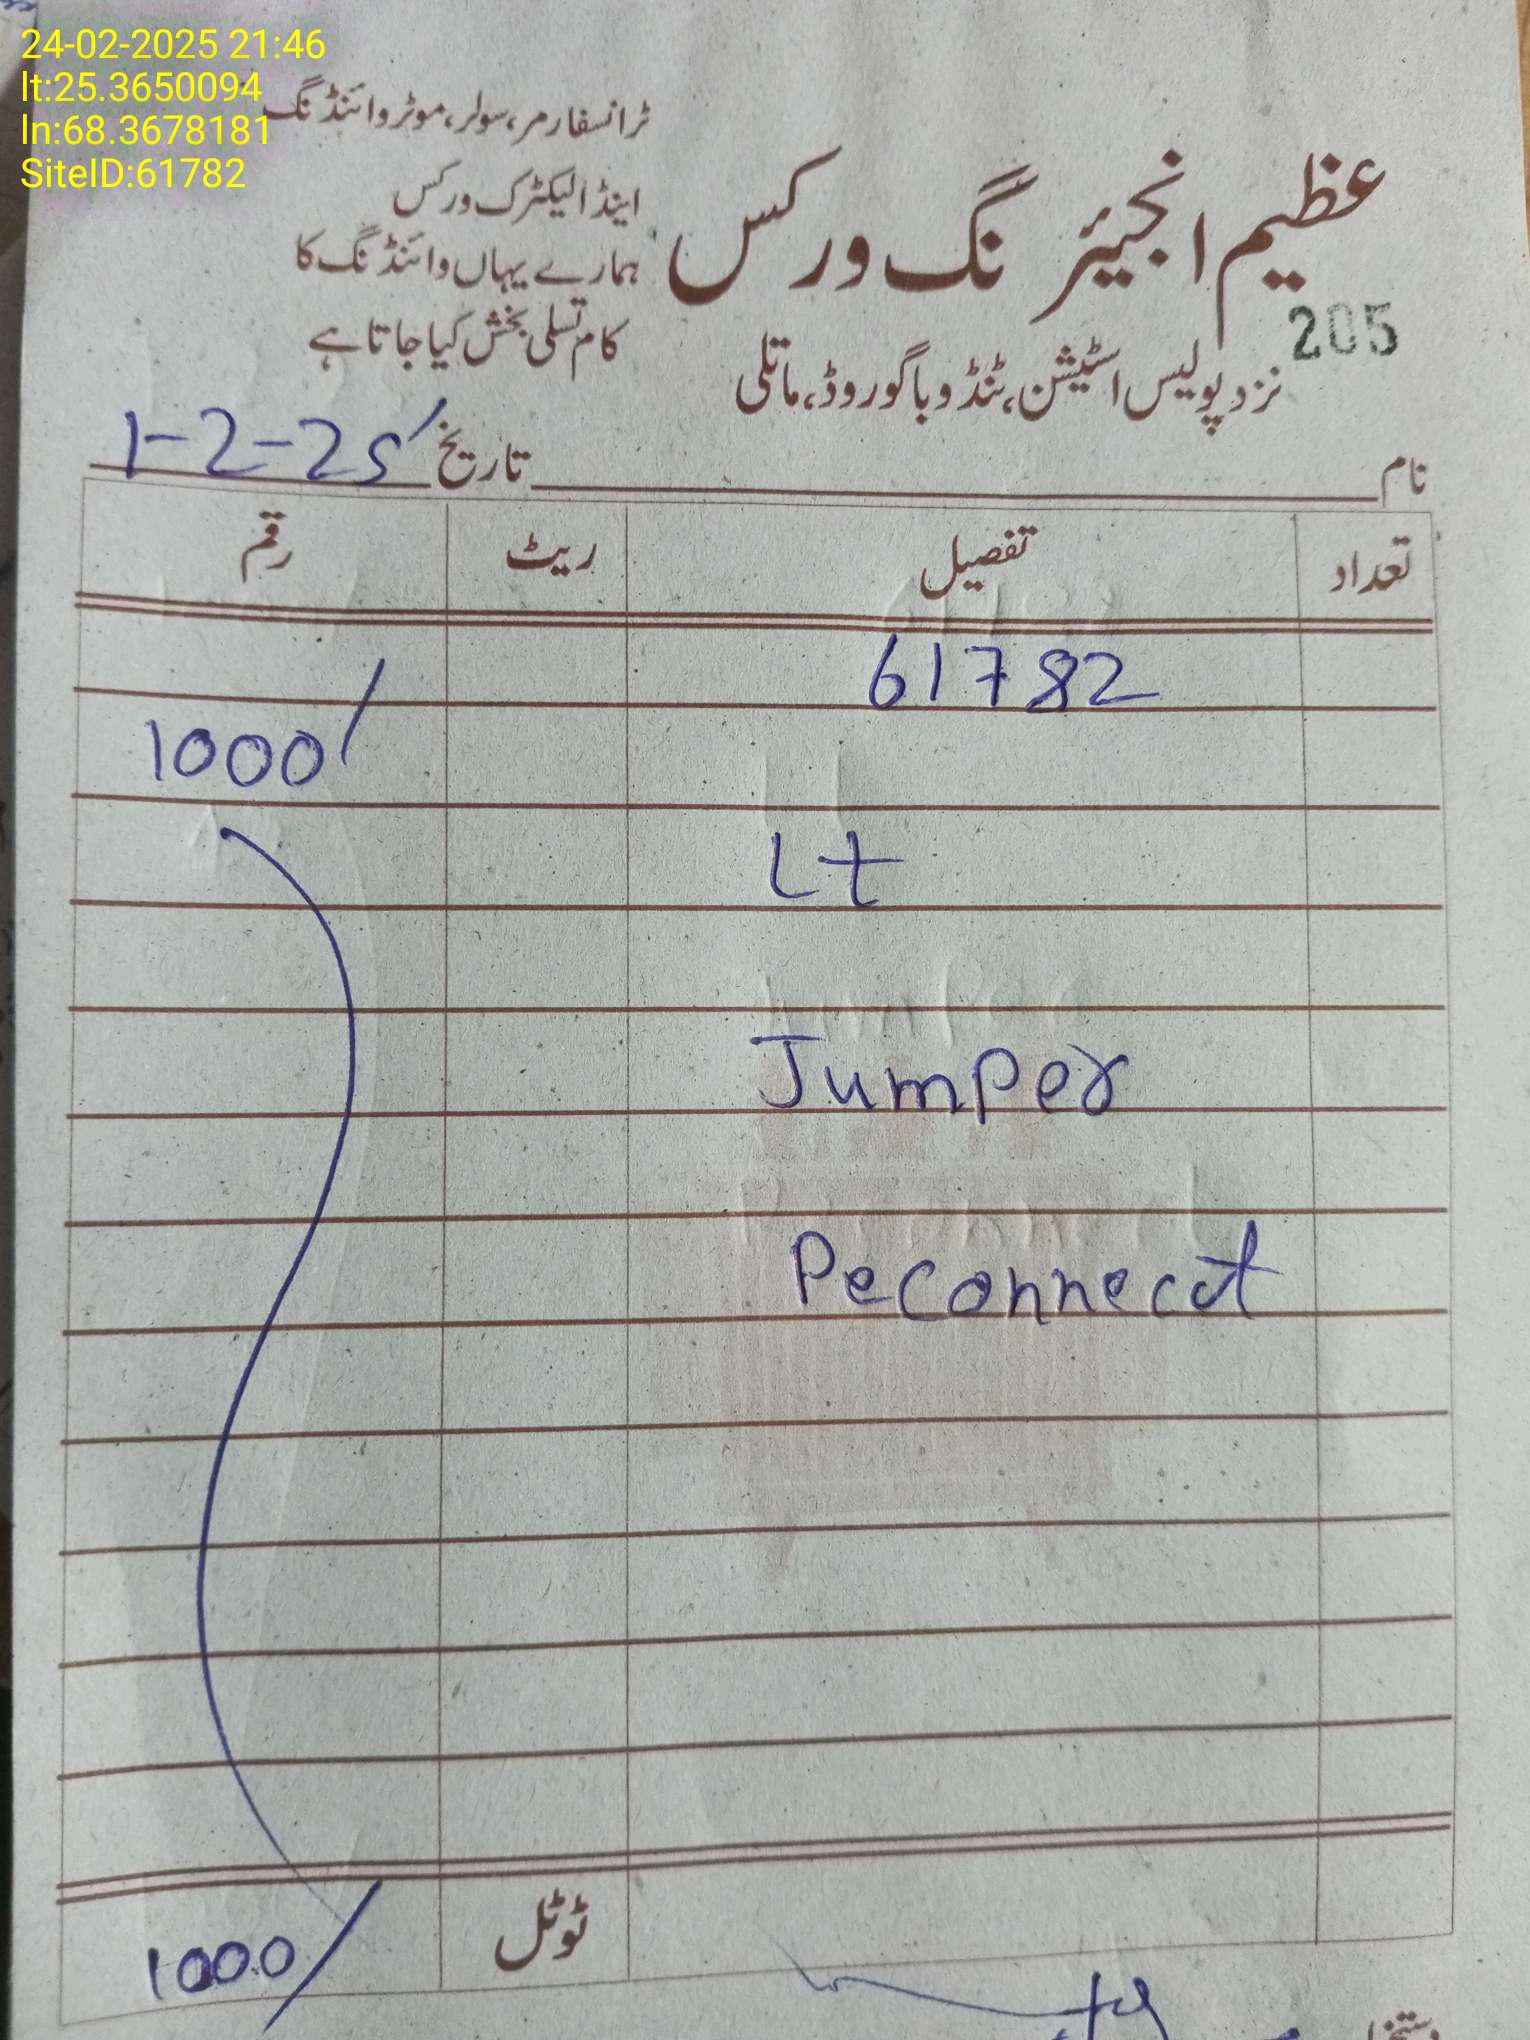 24-02-2025 21:46
lt:25.3650094
ln:68.3678181
SiteID:61782
ٹرانسفارمر، سولر، موٹر وائنڈنگ
اینڈ الیکٹرک ورکس
ہمارے یہاں وائنڈنگ کا
کام تسلی بخش کیا جاتا ہے
عظیم انجیئرنگ ورکس
205
نزد پولیس اسٹیشن، ٹنڈو باگو روڈ، ماتلی
نام تاریخ 1-2-25
تعداد تفصیل ریٹ رقم
61782
1000/
Lt
Jumper
Peconnecct
ٹوٹل 1000/
دستخط